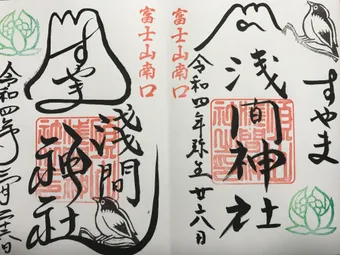 富士山南口
すやま
浅間神社
令和四年弥生廿六日
富士山南口
すやま
浅間
神社
令和四年